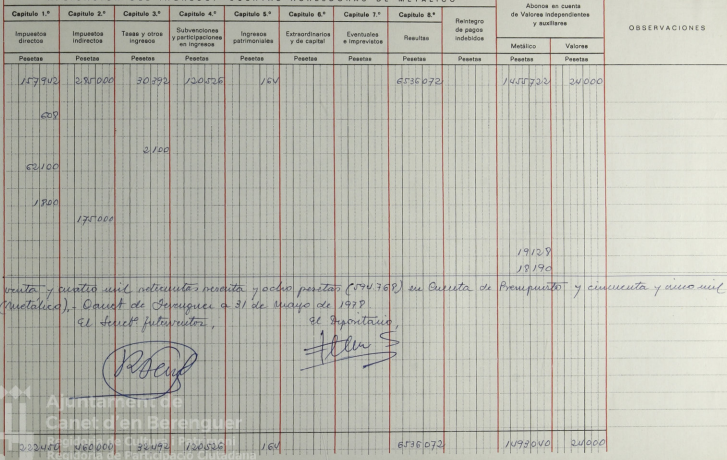 Capítulo 1.º Capítulo 2.º Capítulo 3.º Capítulo 4.º Capítulo 5.º Capítulo 6.º Capítulo 7.º Capítulo 8.º Reintegro de pagos indebidos Abonos en cuenta de Valores independientes y auxiliares OBSERVACIONES
Impuestos directos Impuestos indirectos Tasas y otros ingresos Subvenciones y participaciones en ingresos Ingresos patrimoniales Extraordinarios y de capital Eventuales e imprevistos Resultas Metálico Valores
Pesetas Pesetas Pesetas Pesetas Pesetas Pesetas Pesetas Pesetas Pesetas Pesetas Pesetas
157942 285000 30392 120526 164 6536072 1455722 24000
608
2100
62100
1800
175000
19128
18190
venta y cuatro mil setecientas sesenta y ocho pesetas (594.768) en Cuenta de Presupuesto y cincuenta y cinco mil
(Metálico).- Canet de Berenguer a 31 de mayo de 1978
El Secret.º Interventor, El Depositario,
Ajuntament de
Canet d'en Berenguer
222450 460000 32492 120526 164 6536072 1493040 24000